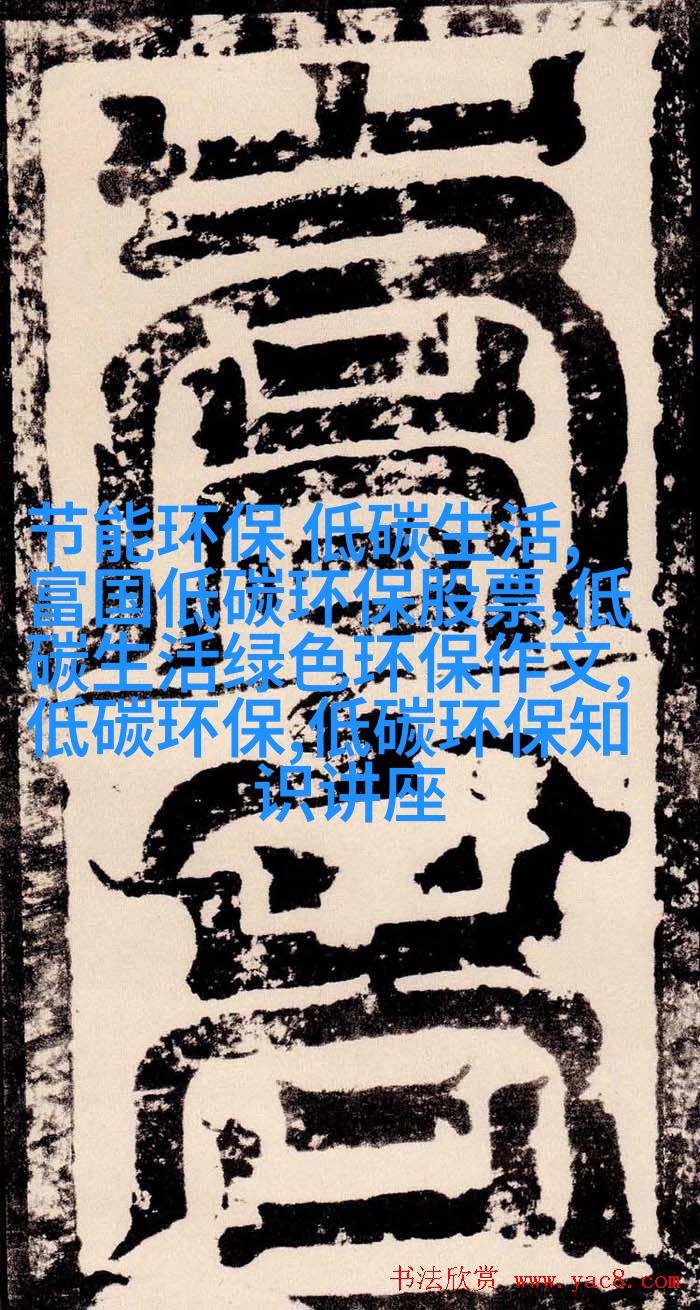 节能环保 低碳生活,
富国低碳环保股票,低
碳生活绿色环保作文,
低碳环保,低碳环保知
识讲座
书法欣赏 www.yac8.com